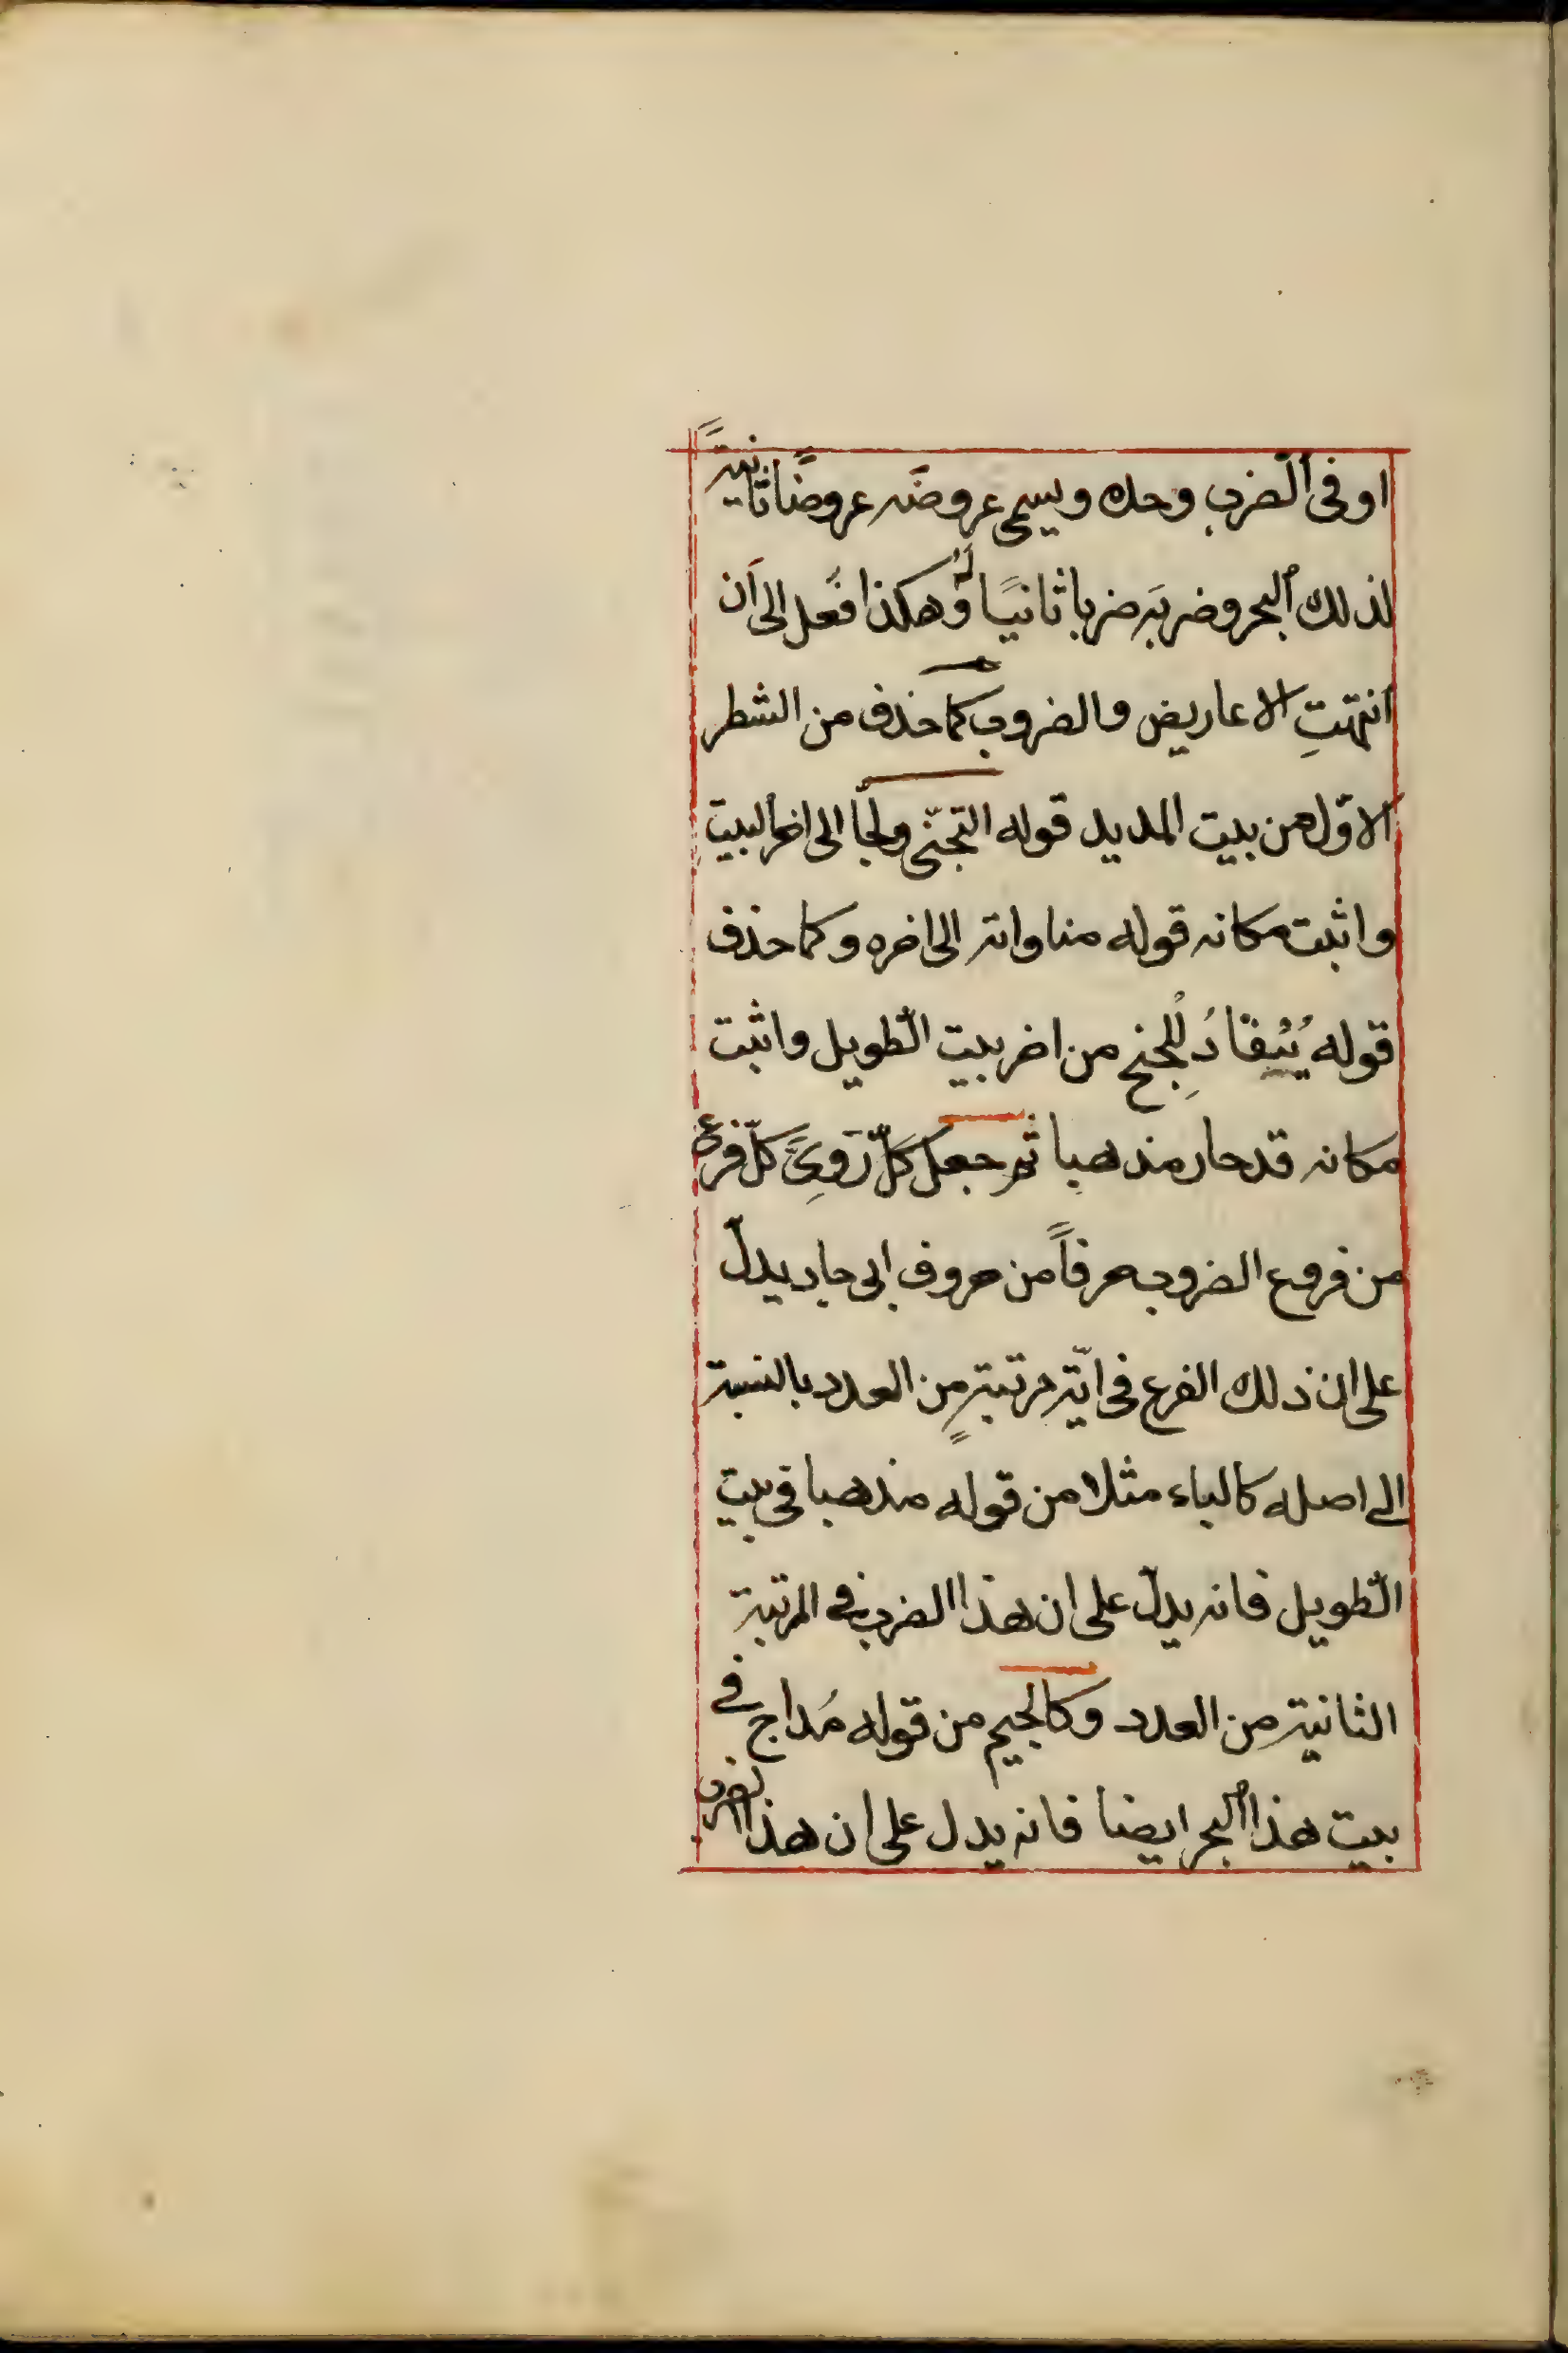 او فى الضرب وحده ويسمى عروضه عروضًا ثانيةً
لذلك البحر وضربه ضربا ثانيًا له وهكذا فعل الى ان
انتهتِ الاعاريض والضروب كما حذف من الشطر
الاوّل من بيت المديد قوله التجنّى ولجأ الى اخر البيت
واثبت مكانه قوله منا وانه الى اخره وكما حذف
قوله للجنح من اخر بيت الطويل واثبت
مكانه قد حار مذهبا ثم جعل كلّ رَوِىّ كلّ فرع
من فروع الضروب حرفاً من حروف ابى جاد يدلّ
على ان ذلك الفرع فى ايّة مرتبةٍ من العدد بالنسبة
الى اصله كالباء مثلا من قوله مذهبا فى بيت
الطويل فانه يدلّ على ان هذا الضرب فى المرتبة
الثانية من العدد وكالجيم من قوله مُداج فى
بيت هذا البحر ايضا فانه يدل على ان هذا الضرب